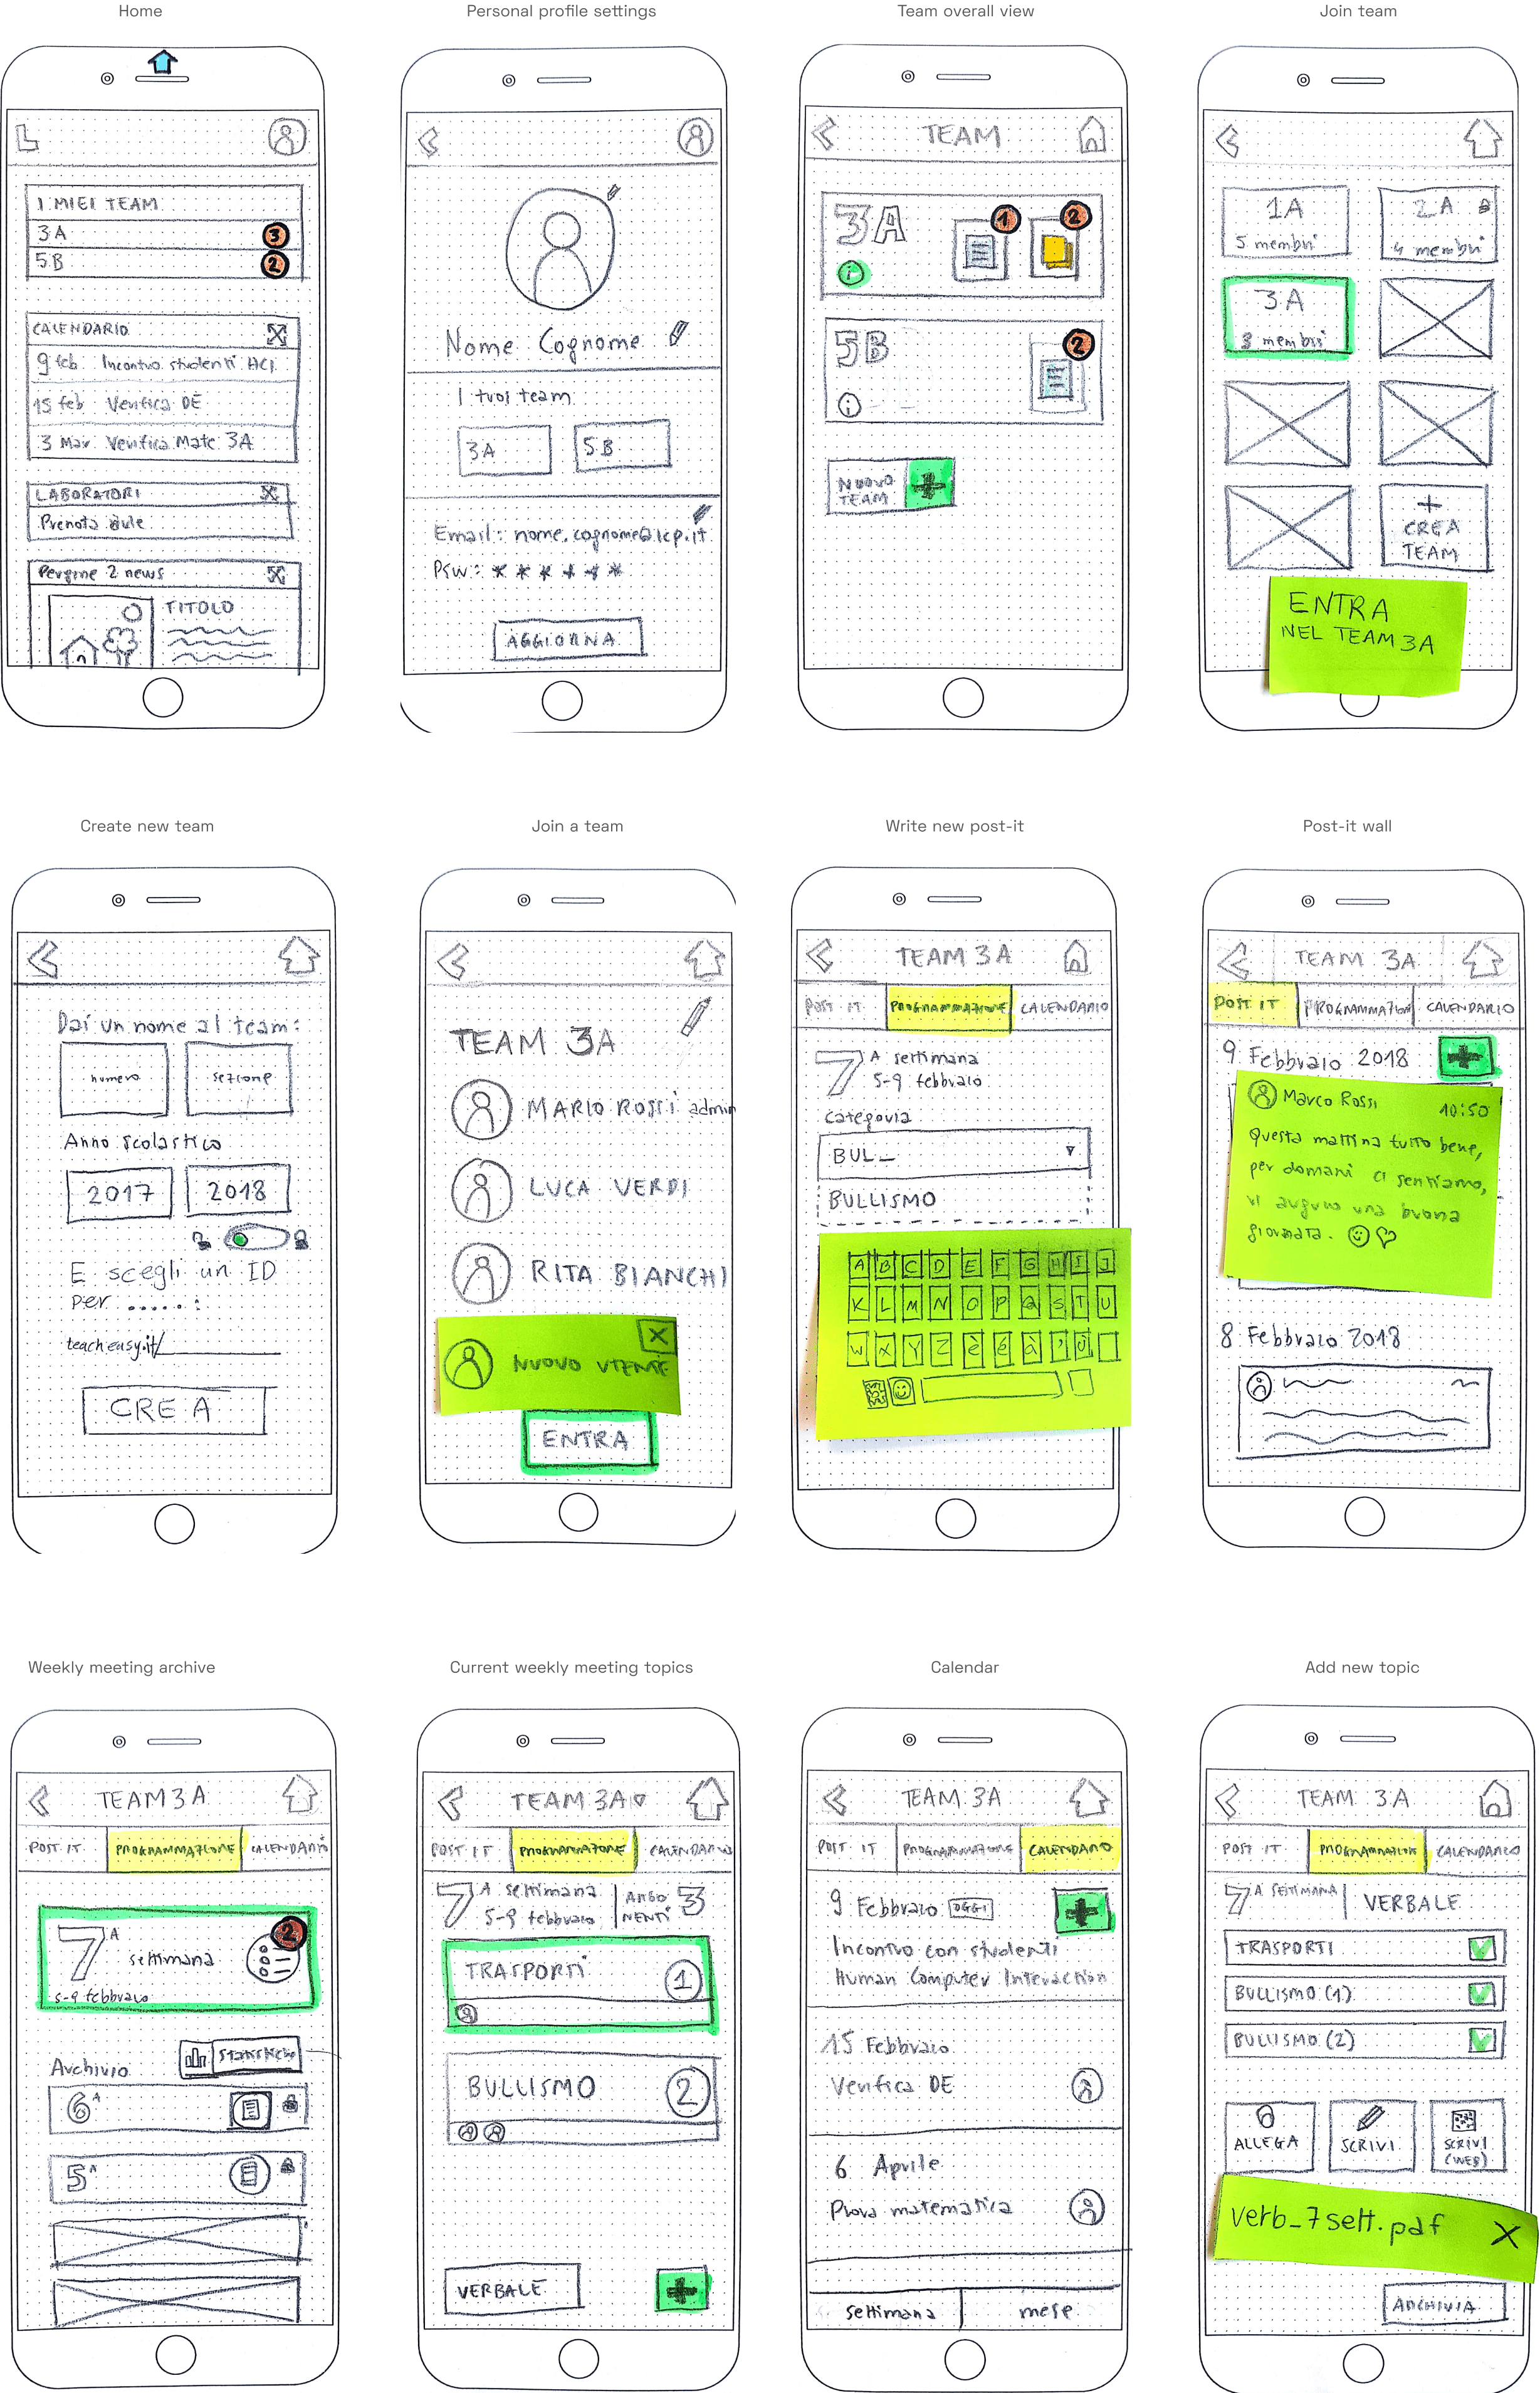 Home
I MIEI TEAM
3A 3
5B 2
CALENDARIO
9 feb Incontro studenti HCI
15 feb Verifica DE
3 Mar Verifica Mate 3A
LABORATORI
Prenota aule
Pergine 2 news
TITOLO
Personal profile settings
Nome Cognome
I tuoi team
3A 5B
Email: nome.cognome@icp.it
Psw: ******
AGGIORNA
Team overall view
TEAM
3A 1 2
i
5B 2
i
NUOVO
TEAM +
Join team
1A 2A
5 membri 4 membri
3A
3 membri
+
CREA
TEAM
ENTRA
NEL TEAM 3A
Create new team
Dai un nome al team:
numero sezione
Anno scolastico
2017 2018
E scegli un ID
per ......:
teacheasy.it/
CREA
Join a team
TEAM 3A
MARIO ROSSI admin
LUCA VERDI
RITA BIANCHI
NUOVO UTENTE X
ENTRA
Write new post-it
TEAM 3A
POST IT PROGRAMMAZIONE CALENDARIO
7A settimana
5-9 febbraio
categoria
BUL_
BULLISMO
A B C D E F G H I J
K L M N O P Q S T U
W X Y Z è é à ' ù
Post-it wall
TEAM 3A
POST IT PROGRAMMAZION CALENDARIO
9 Febbraio 2018 +
Marco Rossi 10:50
Questa mattina tutto bene,
per domani ci sentiamo,
vi auguro una buona
giornata.
8 Febbraio 2018
Weekly meeting archive
TEAM 3A
POST IT PROGRAMMAZIONE CALENDARIO
7A settimana 2
5-9 febbraio
Archivio
6A
5A
Current weekly meeting topics
TEAM 3A
POST IT PROGRAMMAZIONE CALENDARIO
7A settimana ARGO 3
5-9 febbraio MENTI
TRASPORTI 1
BULLISMO 2
VERBALE +
Calendar
TEAM 3A
POST IT PROGRAMMAZIONE CALENDARIO
9 Febbraio OGGI +
Incontro con studenti
Human Computer Interaction
15 Febbraio
Verifica DE
6 Aprile
Prova matematica
settimana mese
Add new topic
TEAM 3A
POST IT PROGRAMMAZION CALENDARIO
7A SETTIMANA VERBALE
TRASPORTI
BULLISMO (1)
BULLISMO (2)
ALLEGA SCRIVI SCRIVI
(WEB)
verb_7sett.pdf X
ARCHIVIA